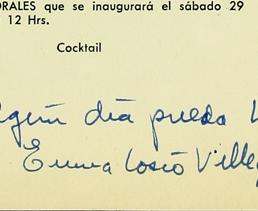 ORALES que se inaugurará el sábado 29
12 Hrs.
Cocktail
lgún día puedo
Emma Cosío Villeg